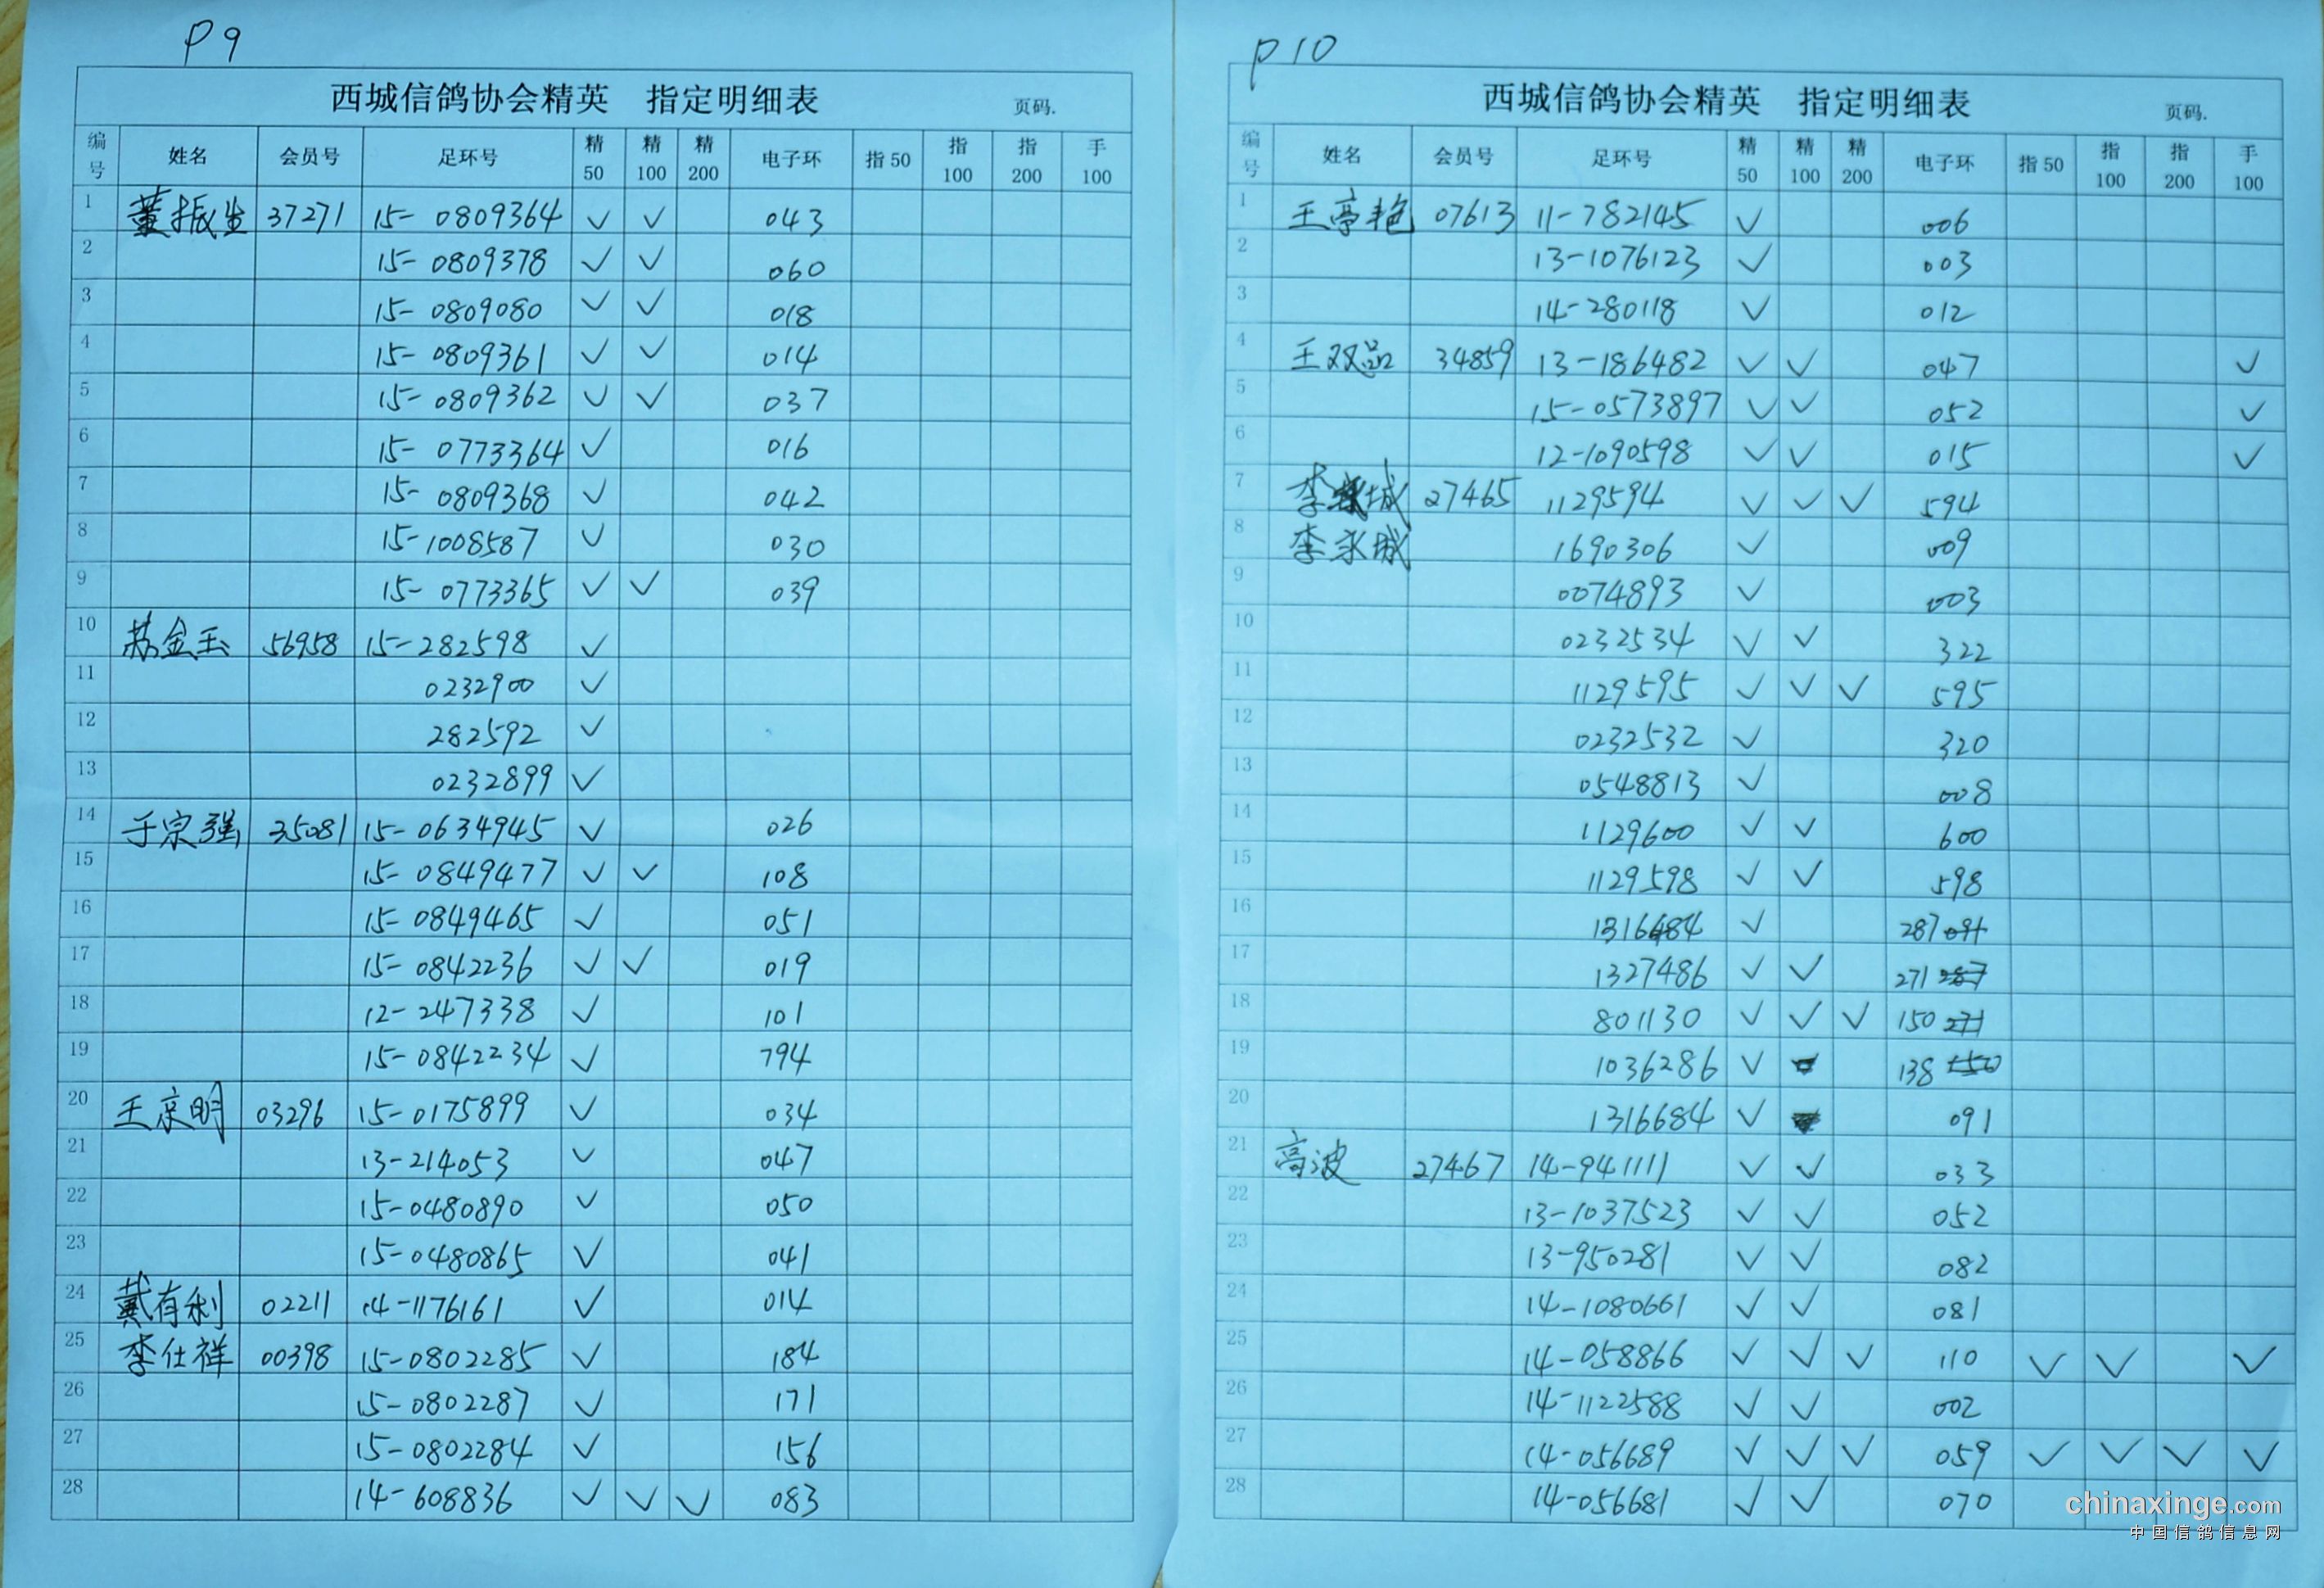 P9
西城信鸽协会精英 指定明细表 页码.
编号 姓名 会员号 足环号 精50 精100 精200 电子环 指50 指100 指200 手100
1 董振生 37271 15-0809364 ✓ ✓ 043
2 15-0809378 ✓ ✓ 060
3 15-0809080 ✓ ✓ 018
4 15-0809361 ✓ ✓ 014
5 15-0809362 ✓ ✓ 037
6 15-0773364 ✓ 016
7 15-0809368 ✓ 042
8 15-1008587 ✓ 030
9 15-0773365 ✓ ✓ 039
10 苏金玉 56958 15-282598 ✓
11 0232900 ✓
12 282592 ✓
13 0232899 ✓
14 于宗强 35081 15-0634945 ✓ 026
15 15-0849477 ✓ ✓ 108
16 15-0849465 ✓ 051
17 15-0842236 ✓ ✓ 019
18 12-247338 ✓ 101
19 15-0842234 ✓ 794
20 王京明 03296 15-0175899 ✓ 034
21 13-214053 ✓ 047
22 15-0480890 ✓ 050
23 15-0480865 ✓ 041
24 戴有利 02211 14-1176161 ✓ 014
25 李仕祥 00398 15-0802285 ✓ 184
26 15-0802287 ✓ 171
27 15-0802284 ✓ 156
28 14-608836 ✓ ✓ ✓ 083
P10
西城信鸽协会精英 指定明细表 页码.
编号 姓名 会员号 足环号 精50 精100 精200 电子环 指50 指100 指200 手100
1 王亭艳 07613 11-782145 ✓ 006
2 13-1076123 ✓ 003
3 14-280118 ✓ 012
4 王双品 34859 13-186482 ✓ ✓ 047 ✓
5 15-0573897 ✓ ✓ 052 ✓
6 12-1090598 ✓ ✓ 015 ✓
7 李城 27465 1129594 ✓ ✓ ✓ 594
8 李永城 1690306 ✓ 009
9 0074893 ✓ 003
10 0232534 ✓ ✓ 322
11 1129595 ✓ ✓ ✓ 595
12 0232532 ✓ 320
13 0548813 ✓ 008
14 1129600 ✓ ✓ 600
15 1129598 ✓ ✓ 598
16 1316484 ✓ 287 091
17 1327486 ✓ ✓ 271 287
18 801130 ✓ ✓ ✓ 150 271
19 1036286 ✓ 138 150
20 1316684 ✓ 091
21 高波 27467 14-941111 ✓ ✓ 033
22 13-1037523 ✓ ✓ 052
23 13-950281 ✓ ✓ 082
24 14-1080661 ✓ ✓ 081
25 14-058866 ✓ ✓ ✓ 110 ✓ ✓ ✓
26 14-1122588 ✓ ✓ 002
27 14-056689 ✓ ✓ ✓ 059 ✓ ✓ ✓ ✓
28 14-056681 ✓ ✓ 070
chinaxinge.com
中国信鸽信息网